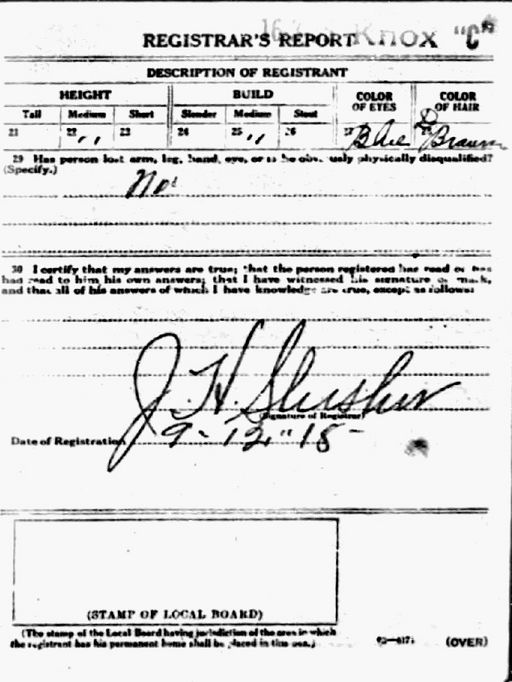 REGISTRAR'S REPORT Knox "C"
DESCRIPTION OF REGISTRANT
HEIGHT BUILD COLOR OF EYES COLOR OF HAIR
Tall Medium Short Slender Medium Stout
21 22 ,, 23 24 25 ,, 26 27 Blue D Brown
29 Has person lost arm, leg, hand, eye, or is he obviously physically disqualified?
(Specify.)
No
30 I certify that my answers are true; that the person registered has read or has
had read to him his own answers; that I have witnessed his signature or mark,
and that all of his answers of which I have knowledge are true, except as follows:
J. H. Slusher
(Signature of Registrar)
Date of Registration 9-12"18-
(STAMP OF LOCAL BOARD)
(The stamp of the Local Board having jurisdiction of the area in which
the registrant has his permanent home shall be placed in this box.)
(OVER)